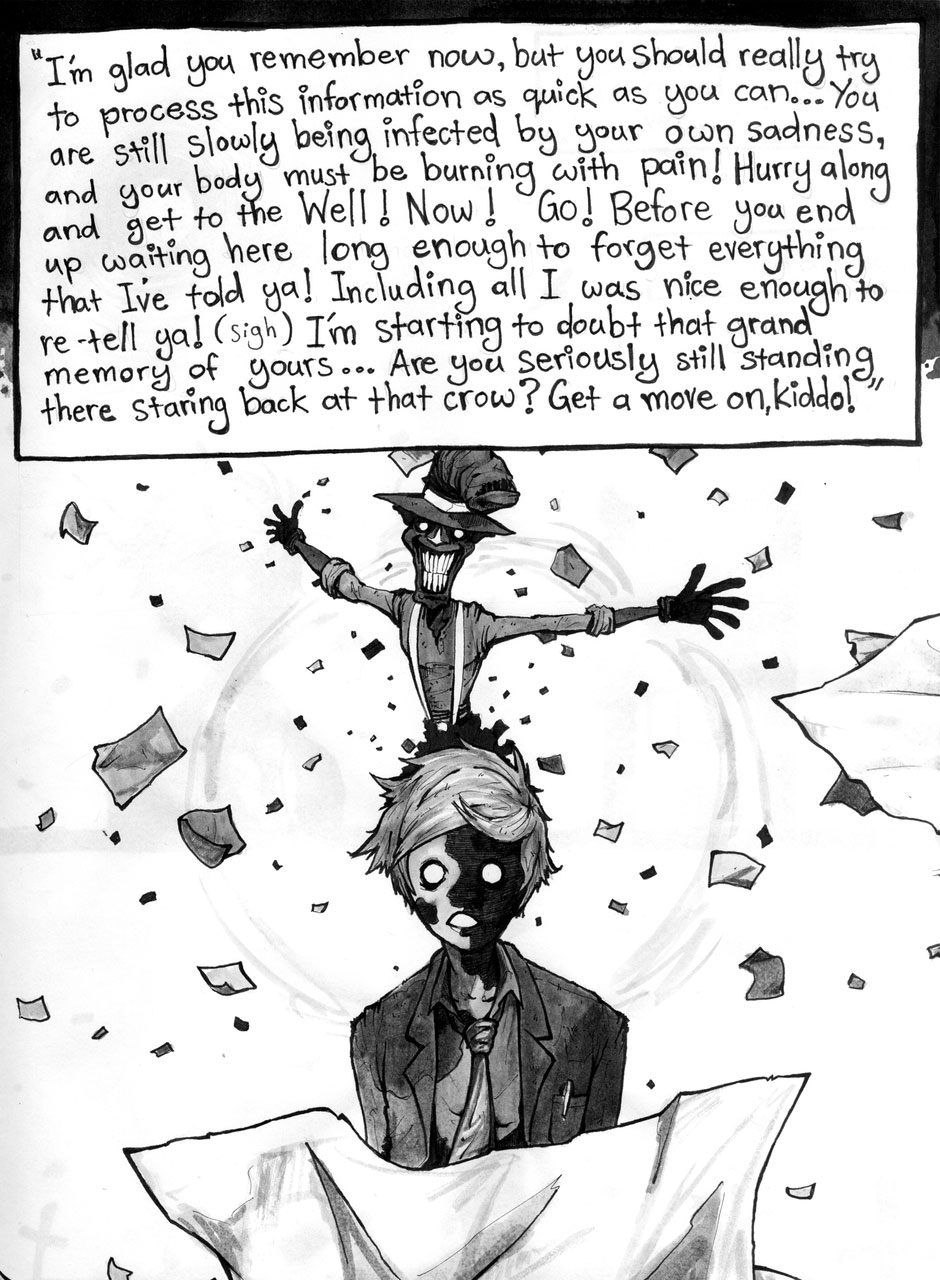 "I'm glad you remember now, but you should really try
to process this information as quick as you can... You
are still slowly being infected by your own sadness,
and your body must be burning with pain! Hurry along
and get to the Well! Now! Go! Before you end
up waiting here long enough to forget everything
that I've told ya! Including all I was nice enough to
re-tell ya! (sigh) I'm starting to doubt that grand
memory of yours... Are you seriously still standing
there staring back at that crow? Get a move on, kiddo!"